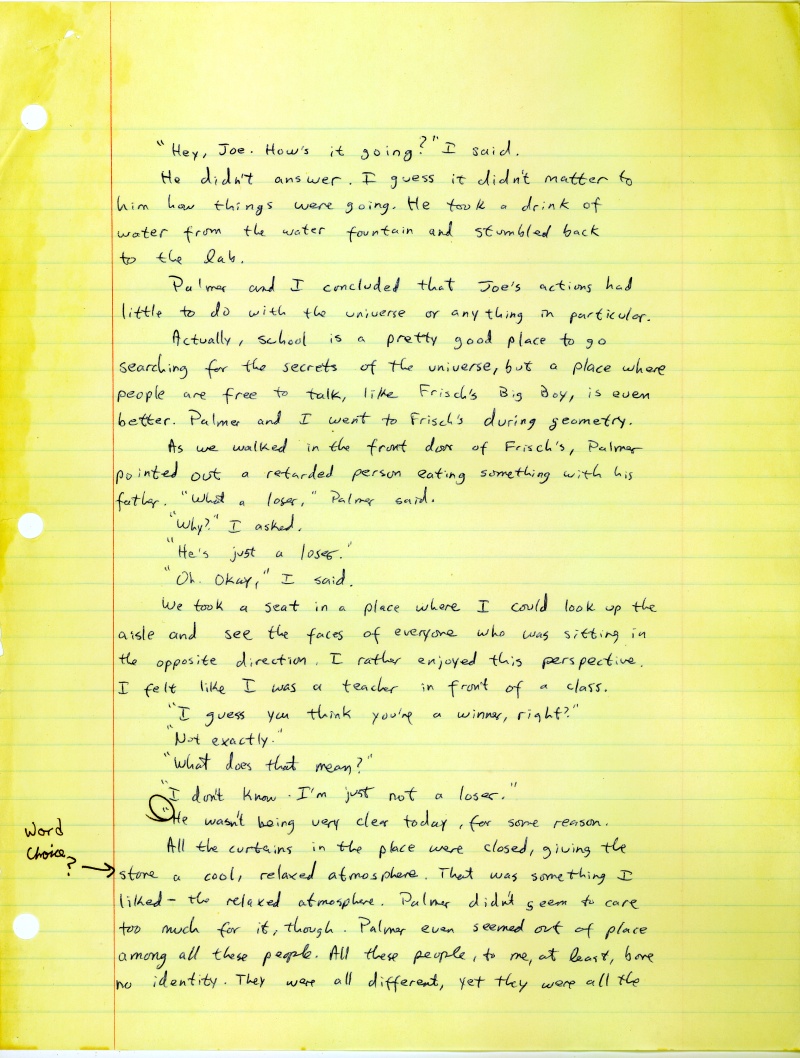 "Hey, Joe. How's it going?" I said.
He didn't answer. I guess it didn't matter to
him how things were going. He took a drink of
water from the water fountain and stumbled back
to the lab.
Palmer and I concluded that Joe's actions had
little to do with the universe or anything in particular.
Actually, school is a pretty good place to go
searching for the secrets of the universe, but a place where
people are free to talk, like Frisch's Big Boy, is even
better. Palmer and I went to Frisch's during geometry.
As we walked in the front door of Frisch's, Palmer
pointed out a retarded person eating something with his
father. "What a loser," Palmer said.
"Why?" I asked.
"He's just a loser."
"Oh. Okay," I said.
We took a seat in a place where I could look up the
aisle and see the faces of everyone who was sitting in
the opposite direction. I rather enjoyed this perspective.
I felt like I was a teacher in front of a class.
"I guess you think you're a winner, right?"
"Not exactly."
"What does that mean?"
"I don't know. I'm just not a loser."
"He wasn't being very clear today, for some reason.
All the curtains in the place were closed, giving the
Word
Choice? →
store a cool, relaxed atmosphere. That was something I
liked - the relaxed atmosphere. Palmer didn't seem to care
too much for it, though. Palmer even seemed out of place
among all these people. All these people, to me, at least, bore
no identity. They were all different, yet they were all the